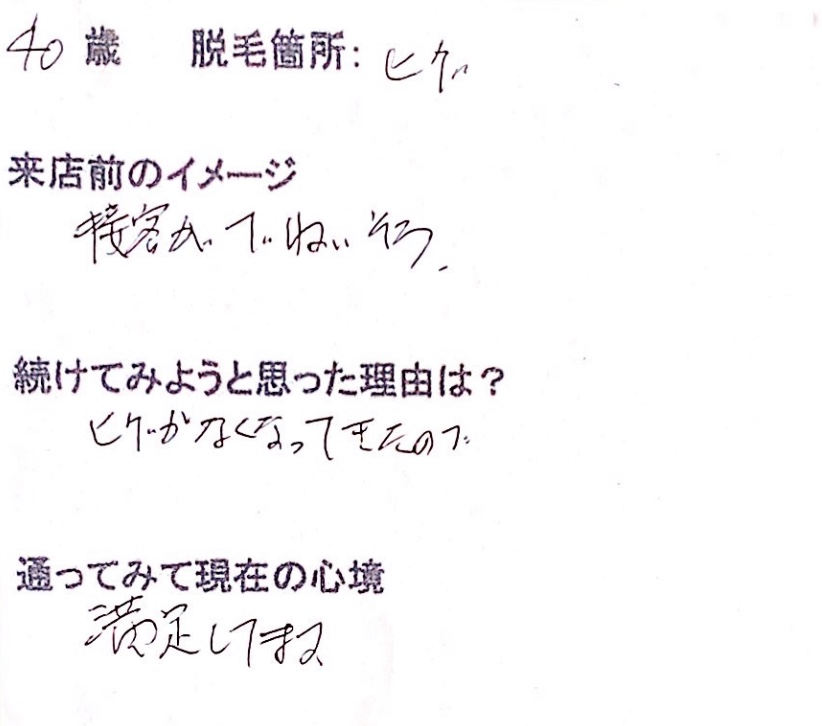 40歳 脱毛箇所: ヒゲ
来店前のイメージ
接客がていねいそう.
続けてみようと思った理由は?
ヒゲがなくなってきたので
通ってみて現在の心境
満足してます